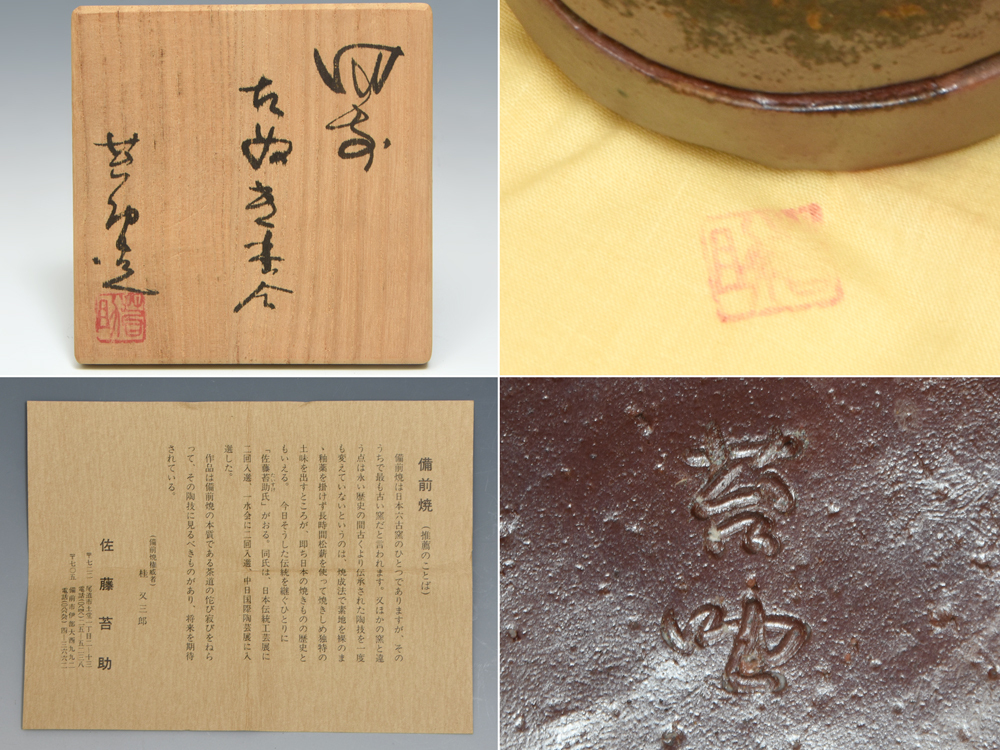 備前
苔助造
苔助
備前焼 (推薦のことば)
備前焼は日本六古窯のひとつでありますが、その
うちで最も古い窯だと言われます。又ほかの窯と違
う点は永い歴史の間古くより伝承された陶技を一度
も変えていないというのは、焼成法で素地を裸のま
ゝ釉薬を掛けず長時間松薪を使って焼きしめ独特の
土味を出すところが、即ち日本の焼きものの歴史と
もいえる。 今日そうした伝統を継ぐひとりに
「佐藤苔助氏」がおる。同氏は、日本伝統工芸展に
二回入選、一水会に二回入選、中日国際陶芸展に入
選した。
作品は備前焼の本質である茶道の佗び寂びをねら
って、その陶技に見るべきものがあり、将来を期待
されている。
(備前焼権威者)
桂 又三郎
佐藤苔助
苔助